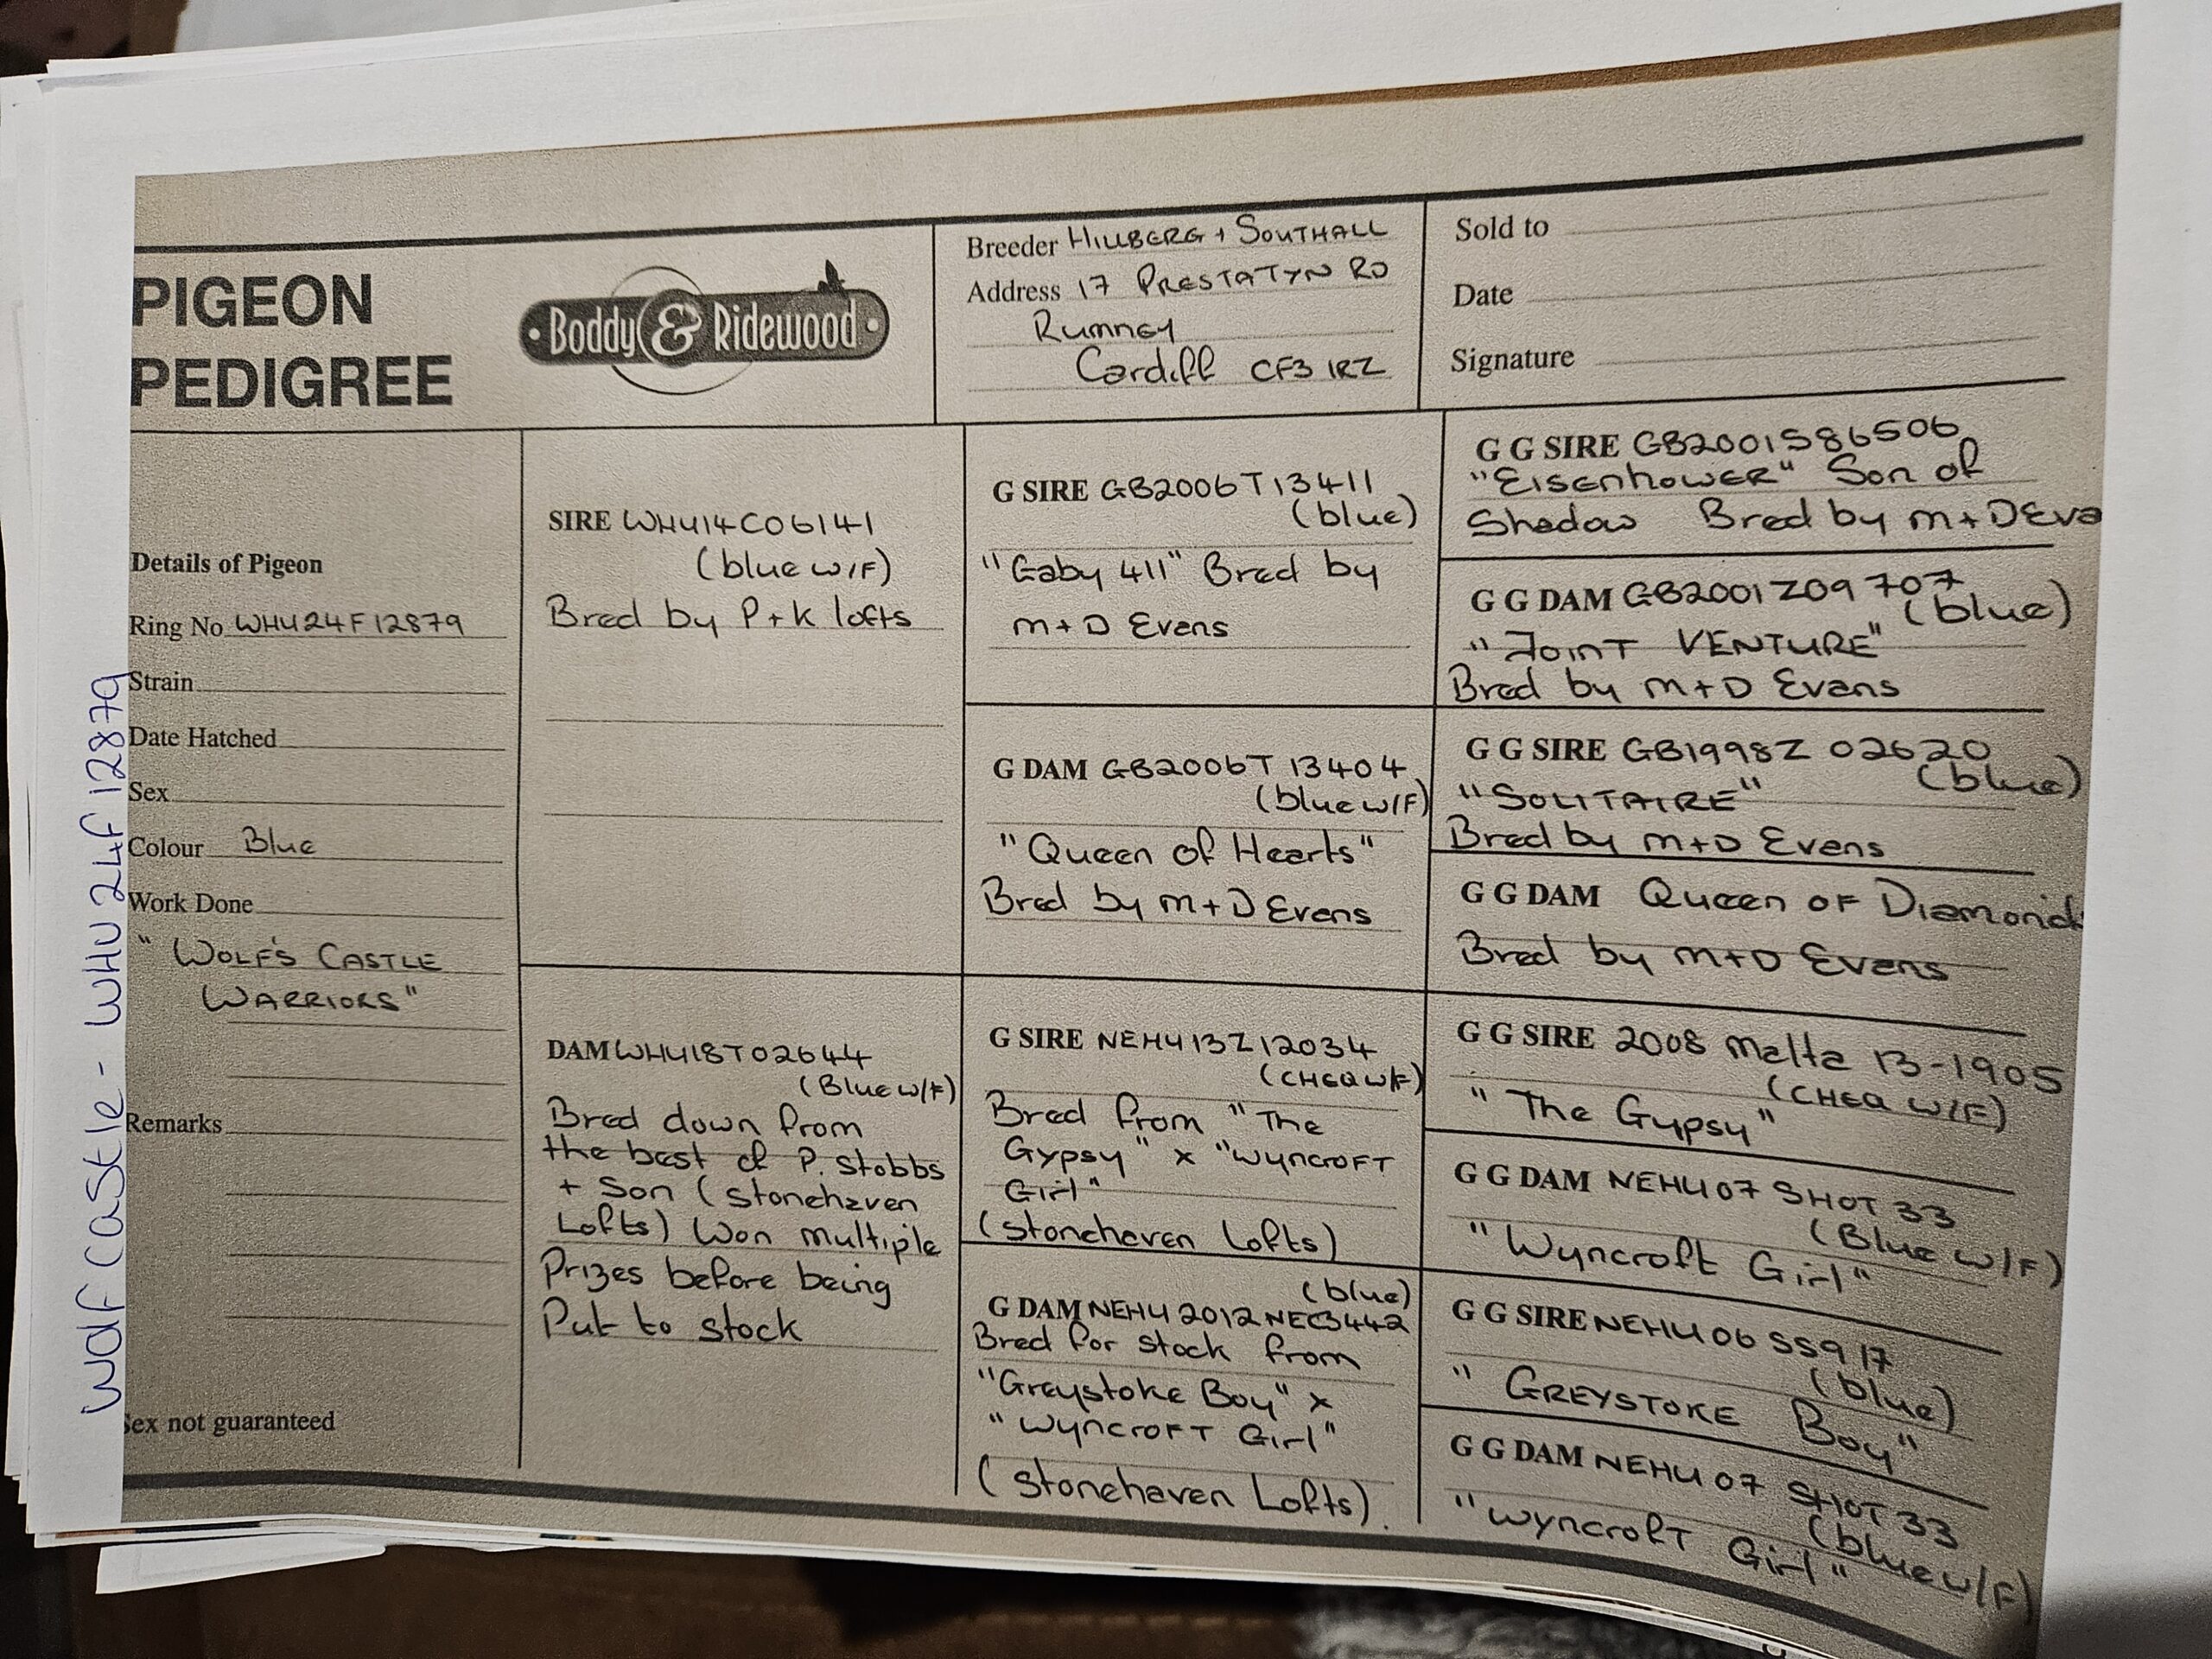 PIGEON
PEDIGREE
Boddy & Ridewood
Breeder HILLBERG + SOUTHALL
Address 17 PRESTATYN RD
Rumney
Cardiff CF3 1RZ
Sold to
Date
Signature
Details of Pigeon
Ring No WHU24F12879
Strain
Date Hatched
Sex
Colour Blue
Work Done
"WOLF'S CASTLE
WARRIORS"
Remarks
Sex not guaranteed
WOLF CASTLE - WHU 24F 12879
SIRE WHU14C06141
(blue W/F)
Bred by P+K lofts
DAM WHU18T02644
(Blue W/F)
Bred down from
the best of P. Stobbs
+ Son (Stonehaven
Lofts) Won multiple
Prizes before being
Put to stock
G SIRE GB2006T13411
(blue)
"Gaby 411" Bred by
M+D Evans
G DAM GB2006T 13404
(blue W/F)
"Queen of Hearts"
Bred by M+D Evans
G SIRE NEHU13Z12034
(CHEQ W/F)
Bred from "The
Gypsy" x "WYNCROFT
Girl"
(Stonehaven Lofts)
(blue)
G DAM NEHU 2012 NEC3442
Bred for stock from
"Greystoke Boy" x
"WYNCROFT Girl"
(Stonehaven Lofts).
G G SIRE GB2001S86506
"EISENHOWER" Son of
Shadow Bred by M+D Eva
G G DAM GB2001Z09707
(blue)
"JOINT VENTURE"
Bred by M+D Evans
G G SIRE GB1998Z 02620
(blue)
"SOLITAIRE"
Bred by M+D Evans
G G DAM Queen OF Diamond
Bred by M+D Evans
G G SIRE 2008 Malta 13-1905
(CHEQ W/F)
"The Gypsy"
G G DAM NEHU07 SHOT 33
(Blue W/F)
"Wyncroft Girl"
G G SIRE NEHU 06 SS917
(blue)
"GREYSTOKE Boy"
G G DAM NEHU 07 SHOT 33
(blue W/F)
"WYNCROFT Girl"